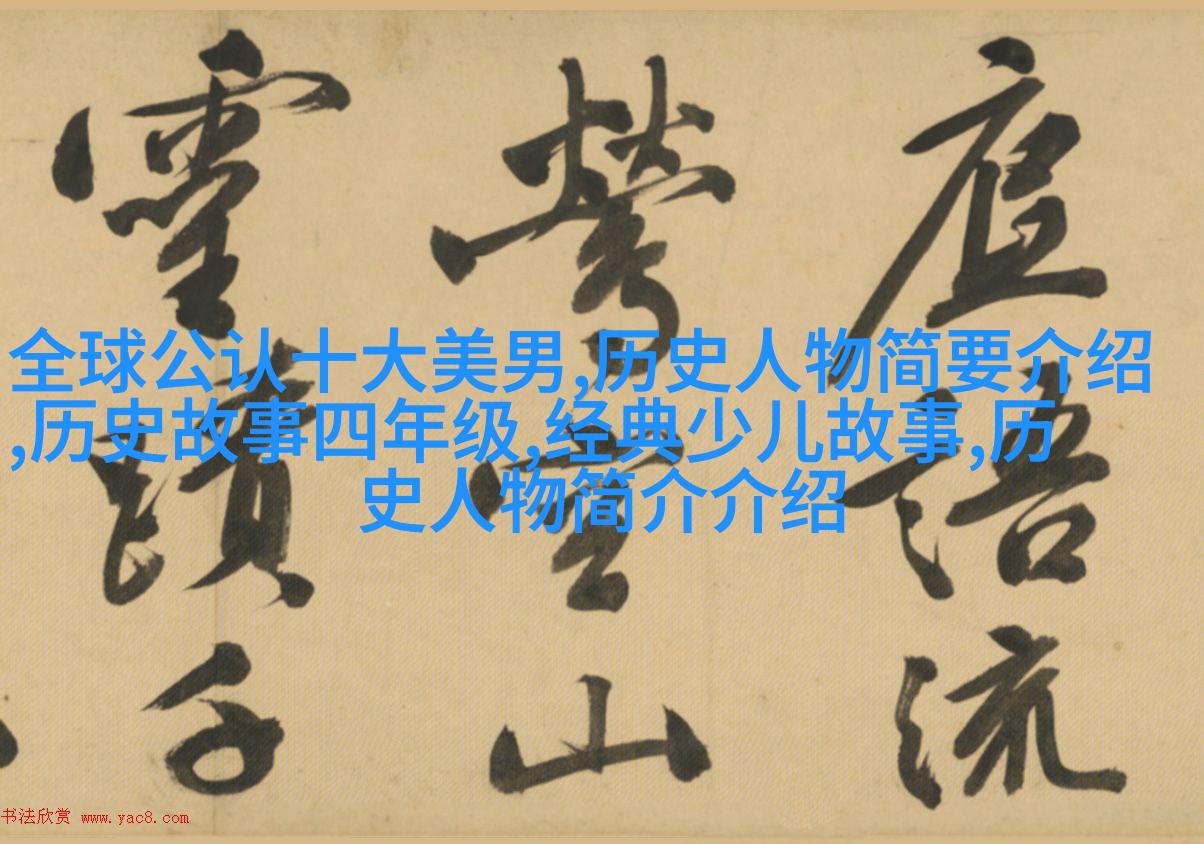 全球公认十大美男,历史人物简要介绍
,历史故事四年级,经典少儿故事,历
史人物简介介绍
語流
山
靈蹟
书法欣赏 www.yac8.com